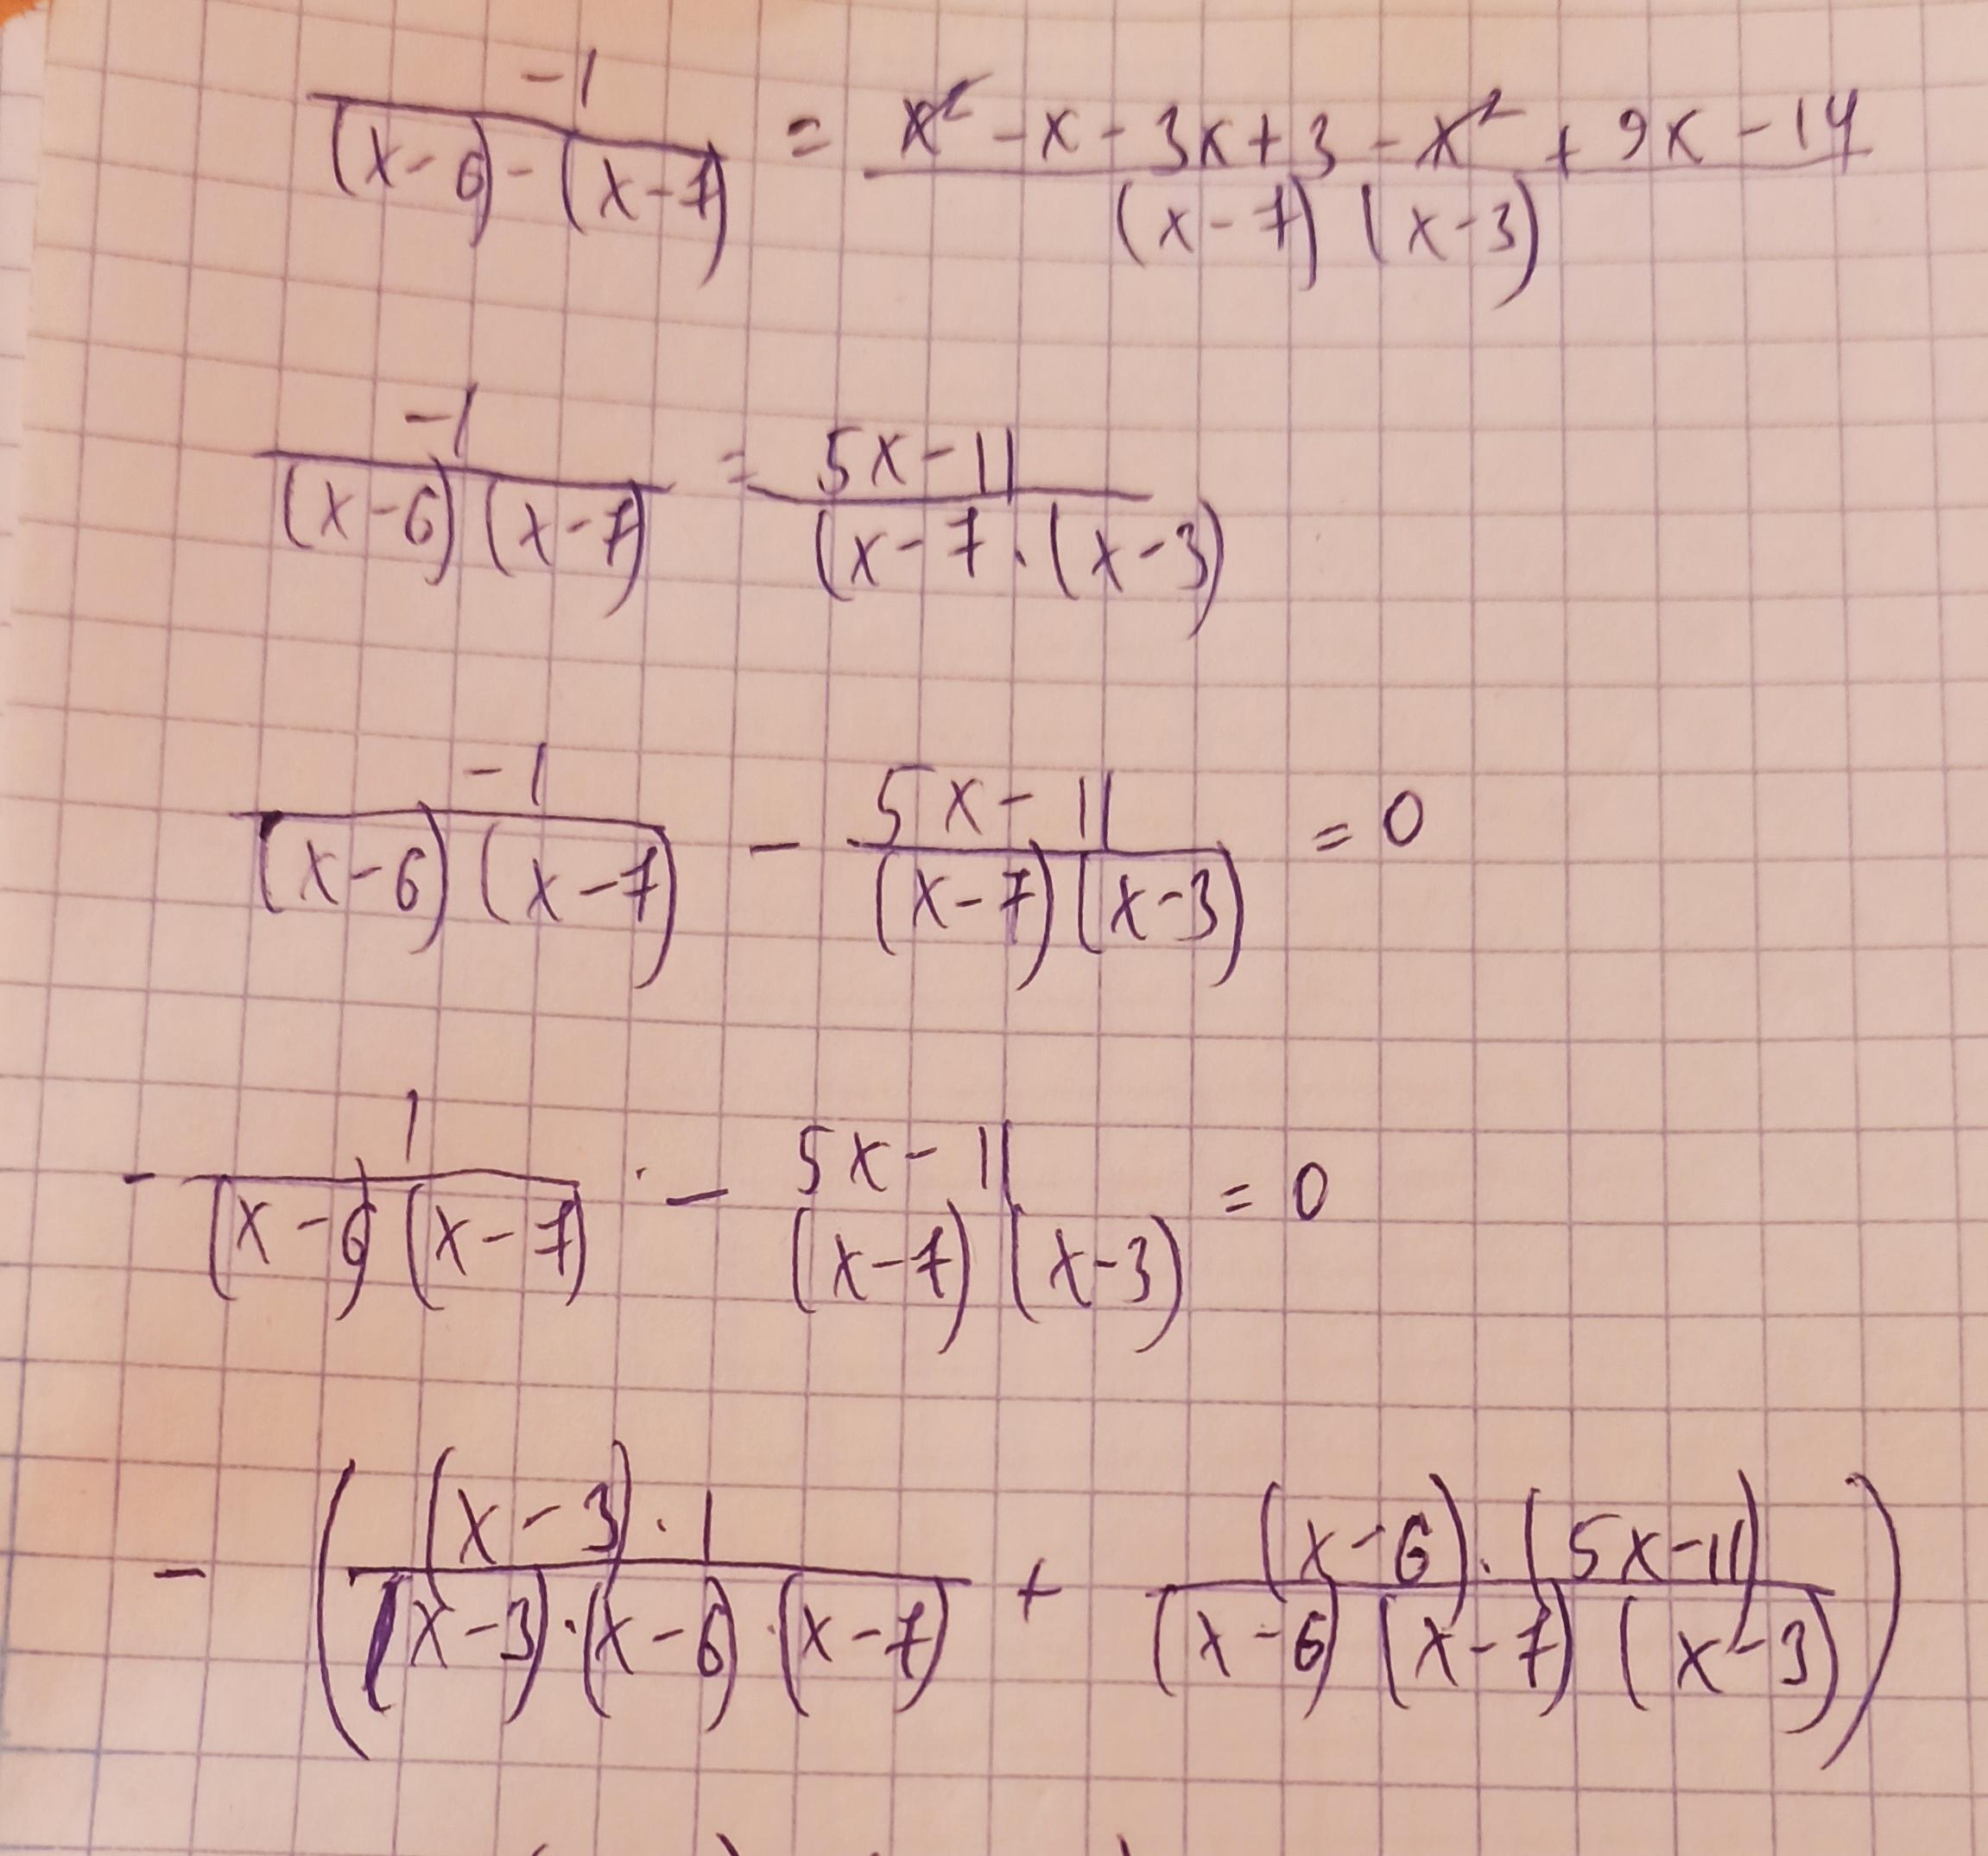 -1/((x-6)-(x-7)) = (x²-x-3x+3-x²+9x-14)/((x-7)(x-3))
-1/((x-6)(x-7)) = (5x-11)/((x-7·(x-3))
-1/((x-6)(x-7)) - (5x-11)/((x-7)(x-3)) = 0
- 1/((x-6)(x-7)) - (5x-11)/((x-7)(x-3)) = 0
- (((x-3)·1)/((x-3)·(x-6)·(x-7)) + ((x-6)·(5x-11))/((x-6)(x-7)(x-3)))